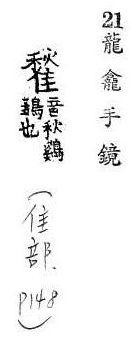 21龍龕手鏡
音秋鷄
也
(隹部 P148)